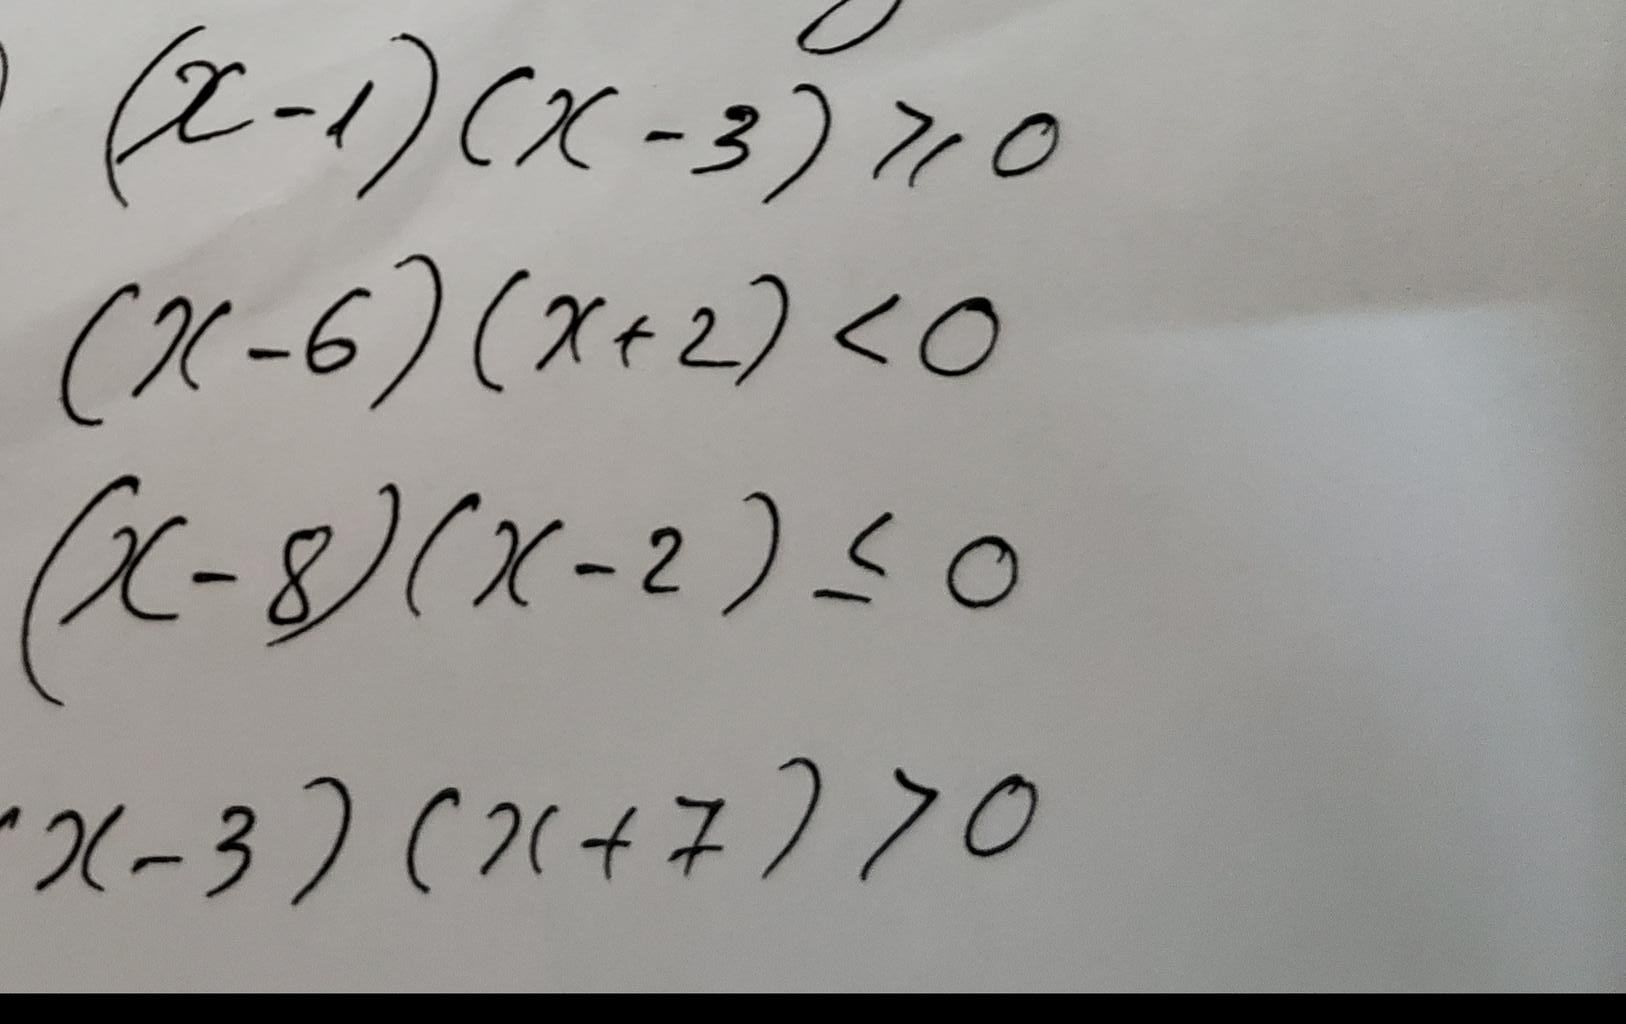 ) (x-1)(x-3) ⩾ 0
(x-6)(x+2) < 0
(x-8)(x-2) ≤ 0
(x-3)(x+7) > 0